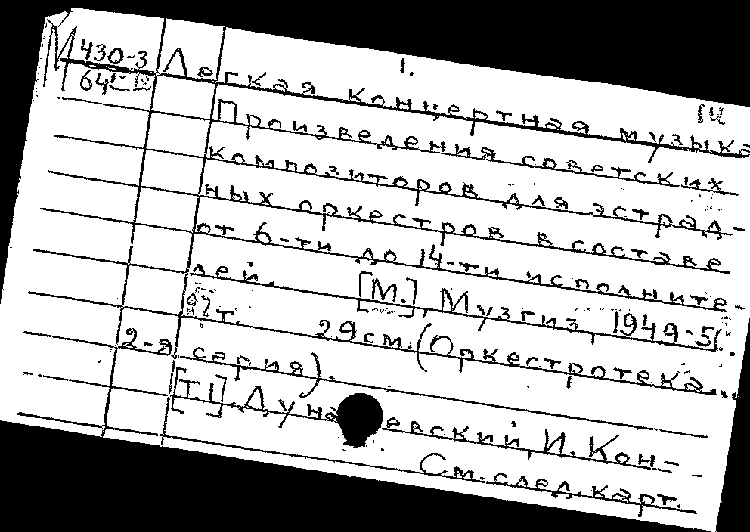 1.
М 430-3
64
Легкая концертная музыка
Произведения советских
композиторов для эстрад-
ных оркестров в составе
от 6-ти до 14-ти исполните-
лей. [М.], Музгиз, 1949-51.
т. 29см. (Оркестротека...
2-я серия).
[Т1]. Дунаевский, И. Кон-
См. след. карт.